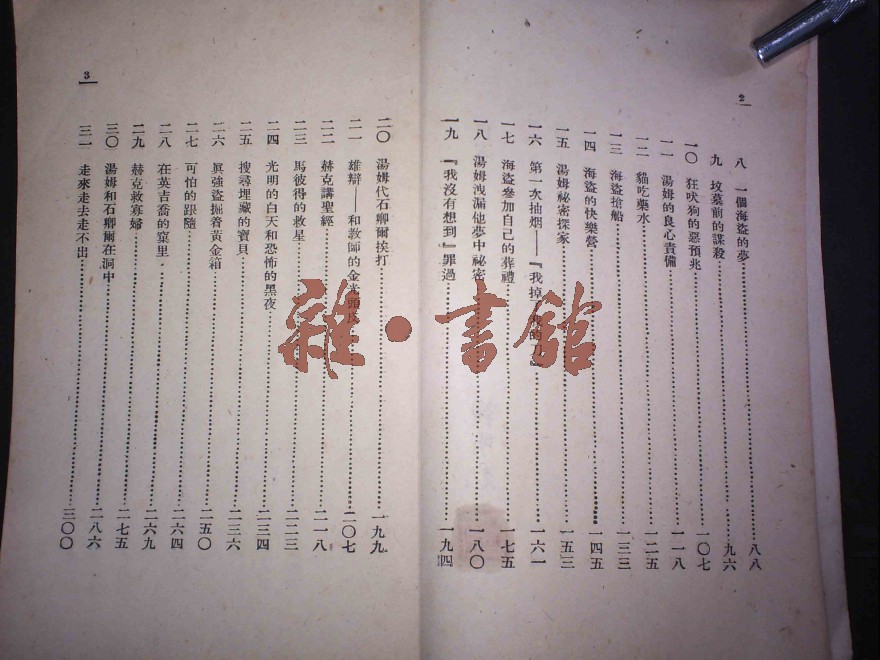 2
八 一個海盜的夢……八八
九 墳墓前的謀殺……九六
一〇 狂吠狗的惡預兆……一〇七
一一 湯姆的良心責備……一一八
一二 貓吃藥水……一二五
一三 海盜搶船……一三三
一四 海盜的快樂營……一四五
一五 湯姆祕密探家……一五三
一六 第一次抽烟——『我掉……一六一
一七 海盜參加自己的葬禮……一七五
一八 湯姆洩漏他夢中祕密……一八〇
一九 『我沒有想到』罪過……一九四
3
二〇 湯姆代石卿爾挨打……一九九
二一 雄辯——和教師的金光頭……二〇七
二二 赫克講聖經……二一八
二三 馬彼得的救星……二二三
二四 光明的白天和恐怖的黑夜……二三四
二五 搜尋埋藏的寶貝……二三六
二六 眞強盜掘着黃金箱……二五〇
二七 可怕的跟隨……二六四
二八 在英吉喬的窠里……二六九
二九 赫克救寡婦……二七五
三〇 湯姆和石卿爾在洞中……二八六
三一 走來走去走不出……三〇〇
雜·書館